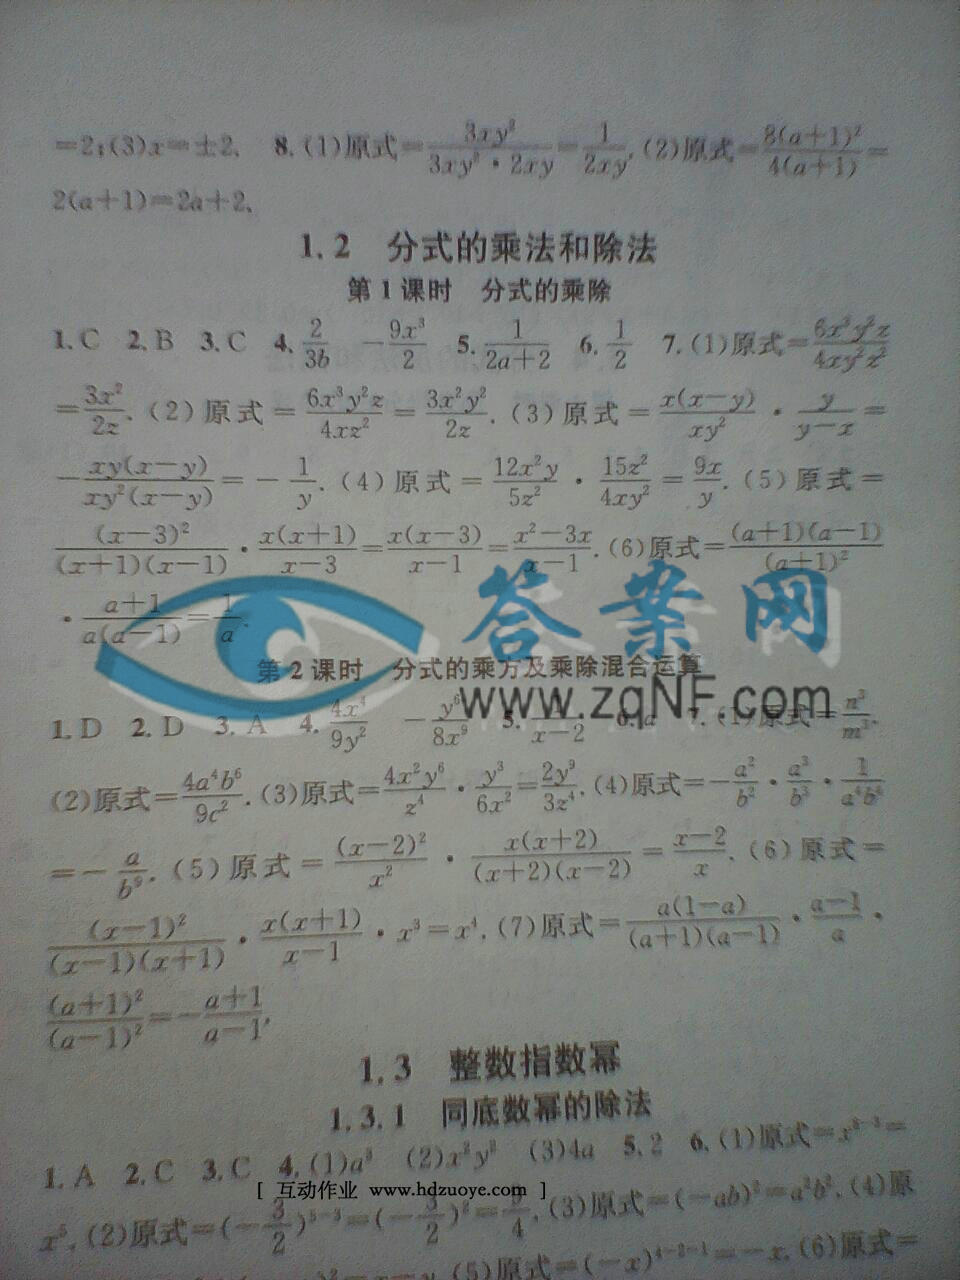 =2;(3)x=±2. 8.(1)原式=3xy²/(3xy²·2xy)=1/(2xy).(2)原式=8(a+1)²/(4(a+1))=
2(a+1)=2a+2.
1.2 分式的乘法和除法
第1课时 分式的乘除
1.C 2.B 3.C 4.2/(3b) -9x³/2 5.1/(2a+2) 6.1/2 7.(1)原式=6x³y²z/(4xy²z²)
=3x²/(2z).(2)原式=6x³y²z/(4xz²)=3x²y²/(2z).(3)原式=x(x-y)/(xy²)·y/(y-x)=
-xy(x-y)/(xy²(x-y))=-1/y.(4)原式=12x²y/(5z²)·15z²/(4xy²)=9x/y.(5)原式=
(x-3)²/((x+1)(x-1))·x(x+1)/(x-3)=x(x-3)/(x-1)=(x²-3x)/(x-1).(6)原式=(a+1)(a-1)/(a+1)²
·(a+1)/(a(a-1))=1/a.
答案网
第2课时 分式的乘方及乘除混合运算
www.zqNF.com
1.D 2.D 3.A 4.4x⁴/(9y²) -y⁶/(8x⁹) 5. /(x-2) 6.a 7.(1)原式=n³/m³.
(2)原式=4a⁴b⁶/(9c²).(3)原式=4x²y⁶/z⁴·y³/(6x²)=2y⁹/(3z⁴).(4)原式=-a²/b²·a³/b³·1/(a⁴b⁴)
=-a/b⁹.(5)原式=(x-2)²/x²·x(x+2)/((x+2)(x-2))=(x-2)/x.(6)原式=
(x-1)²/((x-1)(x+1))·x(x+1)/(x-1)·x³=x⁴.(7)原式=a(1-a)/((a+1)(a-1))·(a-1)/a·
(a+1)²/(a-1)²=-(a+1)/(a-1).
1.3 整数指数幂
1.3.1 同底数幂的除法
1.A 2.C 3.C 4.(1)a³ (2)x²y² (3)4a 5.2 6.(1)原式=x⁸⁻³=
[ 互动作业 www.hdzuoye.com ]
x⁵.(2)原式=(-3/2)⁵⁻³=(-3/2)²=9/4.(3)原式=(-ab)²=a²b².(4)原
(5)原式=(-x)⁴⁻²⁻¹=-x.(6)原式=